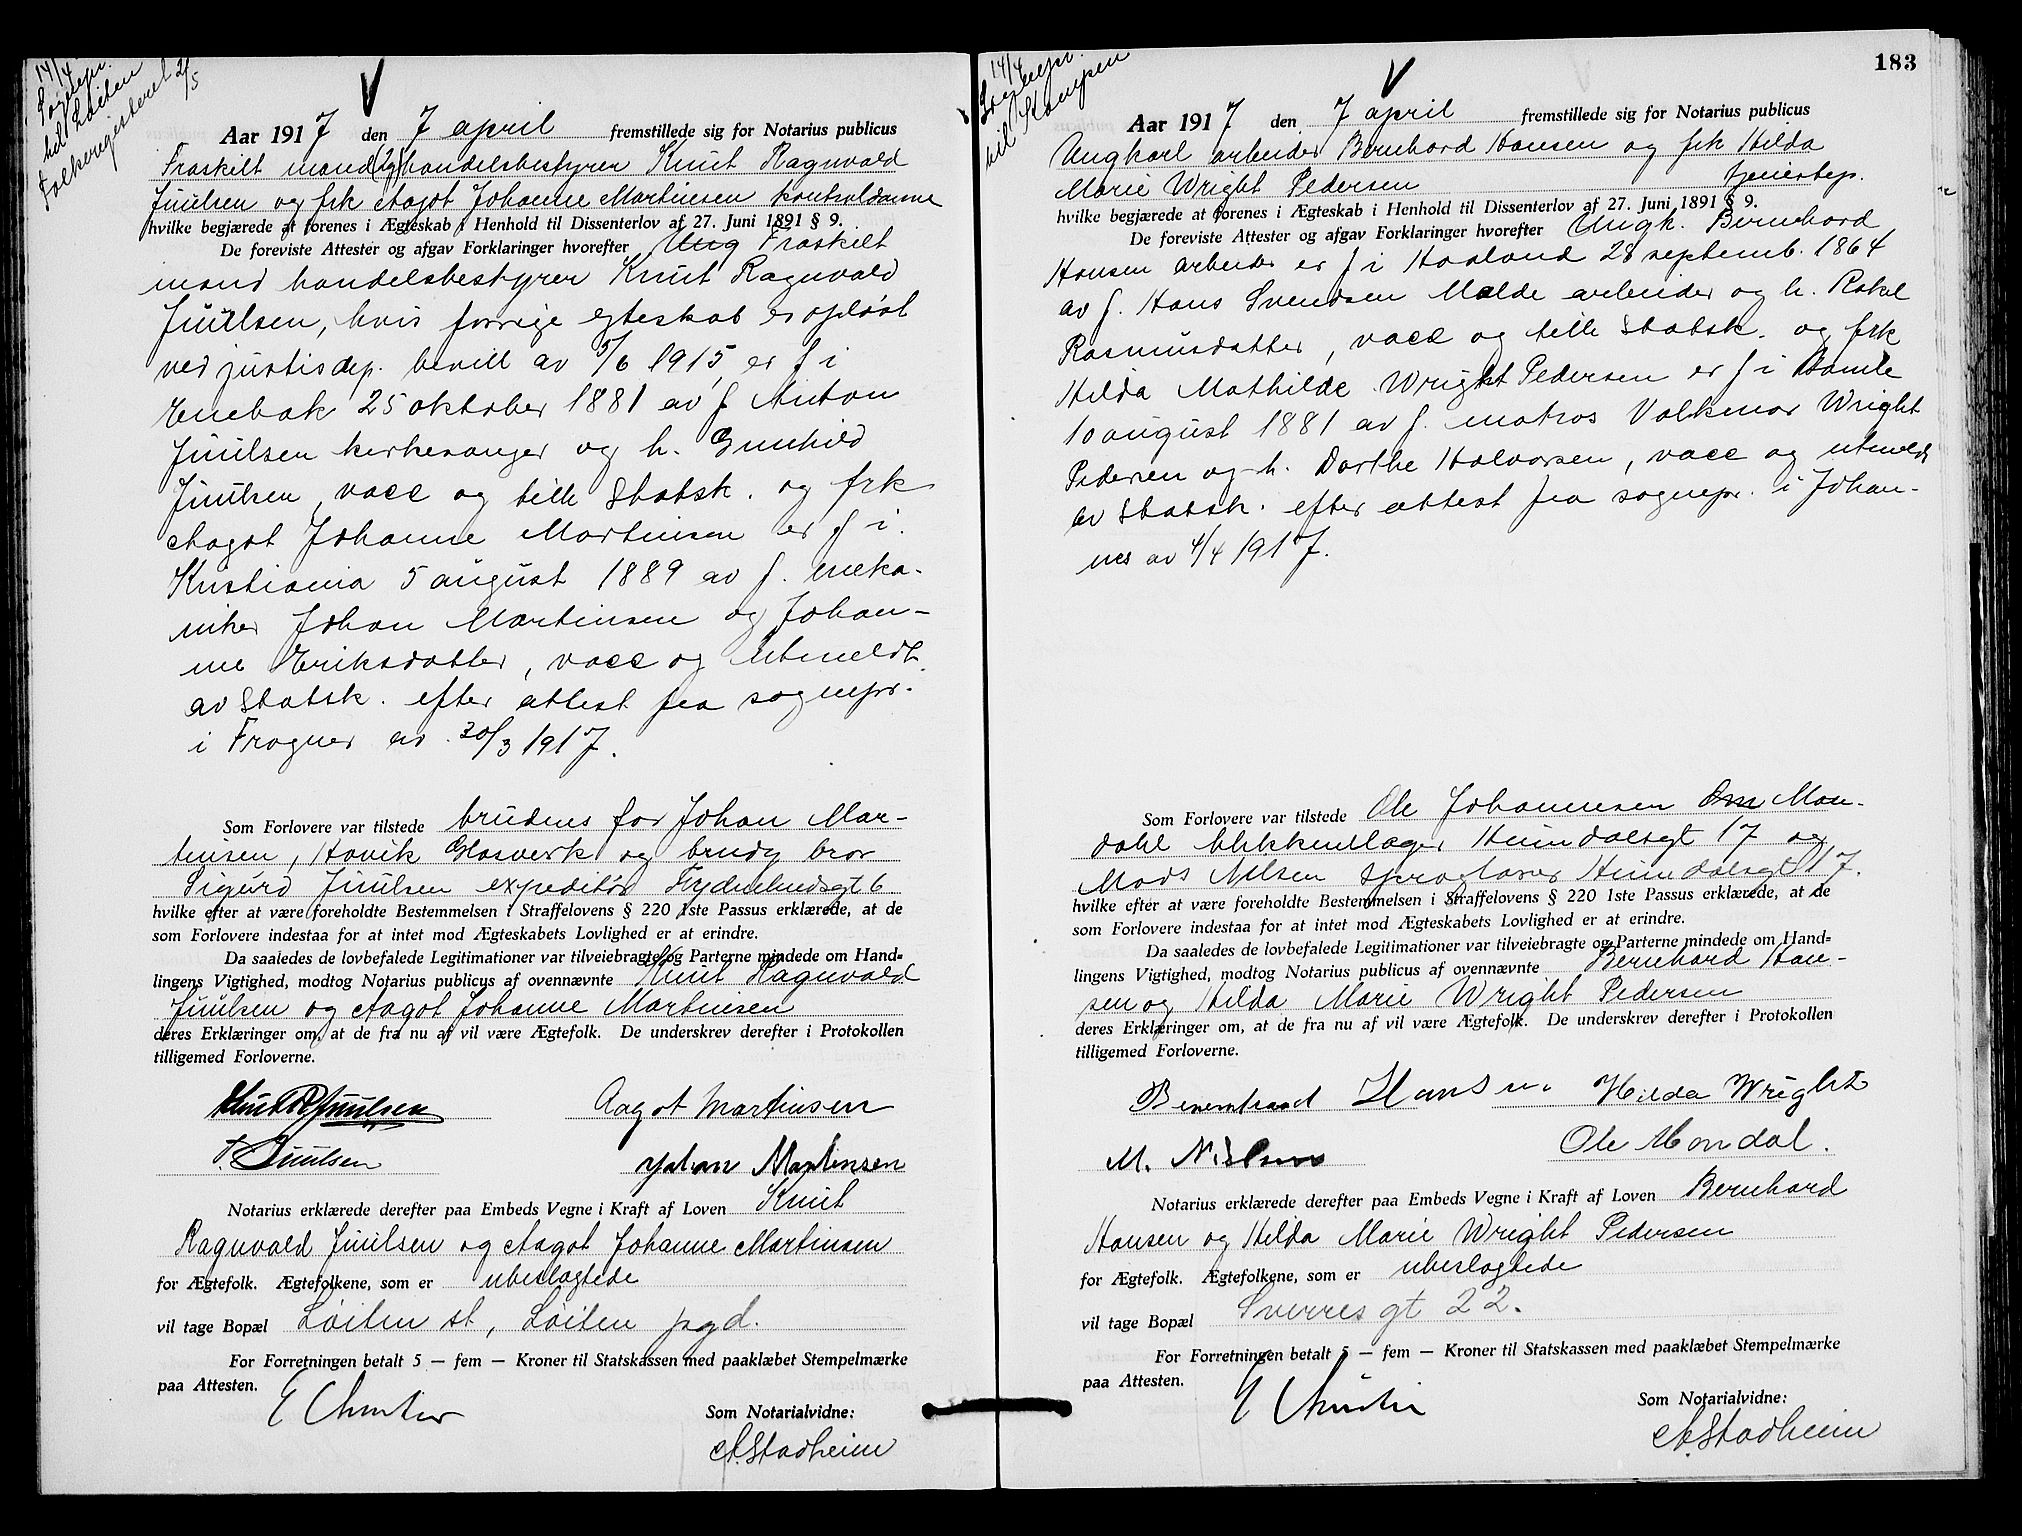 14/4
Sognepr.
til Løiten
Folkeregisteret 2/5
Aar 1917 den 7 april fremstillede sig for Notarius publicus
Fraskilt mand handelsbestyrer Knut Ragnvald
Juulsen og frk Aagot Johanne Martinsen kontordame
hvilke begjærede at forenes i Ægteskab i Henhold til Dissenterlov af 27. Juni 1891 § 9.
De foreviste Attester og afgav Forklaringer hvorefter Ung Fraskilt
mand handelsbestyrer Knut Ragnvald
Juulsen, hvis forrige egteskab er opløst
ved justisdep. bevill av 5/6 1915, er f i
Enebak 25 oktober 1881 av f Anton
Juulsen kirkesanger og h. Gunhild
Juulsen, vacc og tilh Statsk. og frk
Aagot Johanne Martinsen er f i
Kristiania 5 august 1889 av f. meka-
niker Johan Martinsen og Johan-
ne Eriksdatter, vacc og utmeldt
av Statsk. efter attest fra sognepr.
i Frogner av 30/3 1917.
Som Forlovere var tilstede brudens far Johan Mar-
tinsen, Høvik Glasverk og brudg bror
Sigurd Juulsen expeditør Frydenlundsgt 6
hvilke efter at være foreholdte Bestemmelsen i Straffelovens § 220 1ste Passus erklærede, at de
som Forlovere indestaa for at intet mod Ægteskabets Lovlighed er at erindre.
Da saaledes de lovbefalede Legitimationer var tilveiebragte og Parterne mindede om Hand-
lingens Vigtighed, modtog Notarius publicus af ovennævnte Knut Ragnvald
Juulsen og Aagot Johanne Martinsen
deres Erklæringer om, at de fra nu af vil være Ægtefolk. De underskrev derefter i Protokollen
tilligemed Forloverne.
Knut R Juulsen Aagot Martinsen
Juulsen Johan Martinsen
Notarius erklærede derefter paa Embeds Vegne i Kraft af Loven Knut
Ragnvald Juulsen og Aagot Johanne Martinsen
for Ægtefolk. Ægtefolkene, som er ubeslægtede
vil tage Bopæl Løiten st, Løiten pgd.
For Forretningen betalt 5 — fem — Kroner til Statskassen med paaklæbet Stempelmærke
paa Attesten.
Som Notarialvidne:
A. Stadheim
183
14/4
Sognepr.
til Kampen
Aar 1917 den 7 april fremstillede sig for Notarius publicus
Ungkarl arbeider Bernhard Hansen og frk Hilda
Marie Wright Pedersen tjenestep.
hvilke begjærede at forenes i Ægteskab i Henhold til Dissenterlov af 27. Juni 1891 § 9.
De foreviste Attester og afgav Forklaringer hvorefter Ungk. Bernhard
Hansen arbeider er f i Haaland 28 septemb. 1864
av f. Hans Svendsen Malde arbeider og h. Rakel
Rasmusdatter, vacc og tilh Statsk. og frk
Hilda Mathilde Wright Pedersen er f i Bamle
10 august 1881 av f. matros Volkmar Wright
Pedersen og h. Dorthe Halvorsen, vacc og utmeldt
av Statsk. efter attest fra sognepr. i Johan-
nes av 4/4 1917.
Som Forlovere var tilstede Ole Johannesen Man-
dahl blikkenslager Heimdalsgt 17 og
Mads Nilsen Heimdalsgt 17.
hvilke efter at være foreholdte Bestemmelsen i Straffelovens § 220 1ste Passus erklærede, at de
som Forlovere indestaa for at intet mod Ægteskabets Lovlighed er at erindre.
Da saaledes de lovbefalede Legitimationer var tilveiebragte og Parterne mindede om Hand-
lingens Vigtighed, modtog Notarius publicus af ovennævnte Bernhard Han-
sen og Hilda Marie Wright Pedersen
deres Erklæringer om, at de fra nu af vil være Ægtefolk. De underskrev derefter i Protokollen
tilligemed Forloverne.
Hansen. Hilda Wright
M. Nilsen Ole Mondal.
Notarius erklærede derefter paa Embeds Vegne i Kraft af Loven Bernhard
Hansen og Hilda Marie Wright Pedersen
for Ægtefolk. Ægtefolkene, som er ubeslægtede
vil tage Bopæl Sverres gt 22.
For Forretningen betalt 5 — fem — Kroner til Statskassen med paaklæbet Stempelmærke
paa Attesten.
Som Notarialvidne:
A. Stadheim